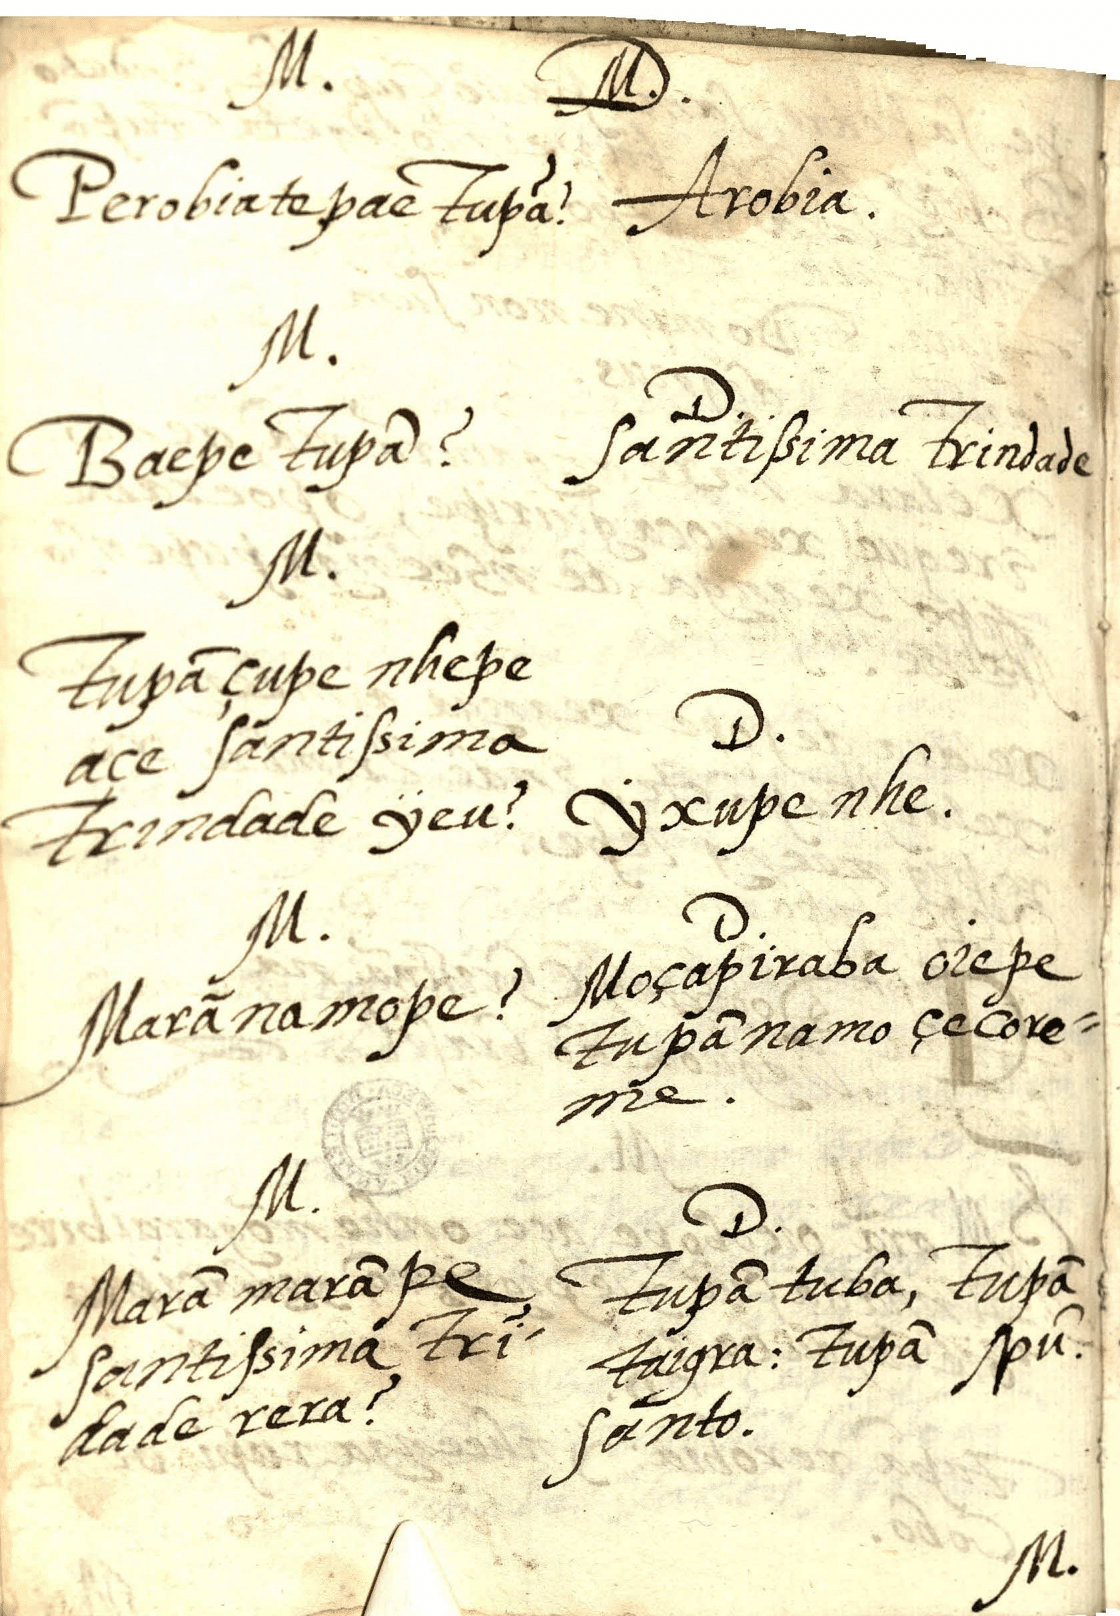 M.
D.
Perobiatepae Tupã?
Arobia.
M.
D.
Baepe Tupã?
santissima Trindade
M.
Tupã çupe nhepe
açe santissima
Trindade ÿeu?
D.
Ÿxupe nhe.
M.
D.
Marãnamope?
Moçapiraba oiepe
tupãnamo çecore=
me.
M.
D.
Marã marãpe
santissima Tri-
dade rera?
Tupã tuba, Tupã
taigra: Tupã spũ.
santo.
M.